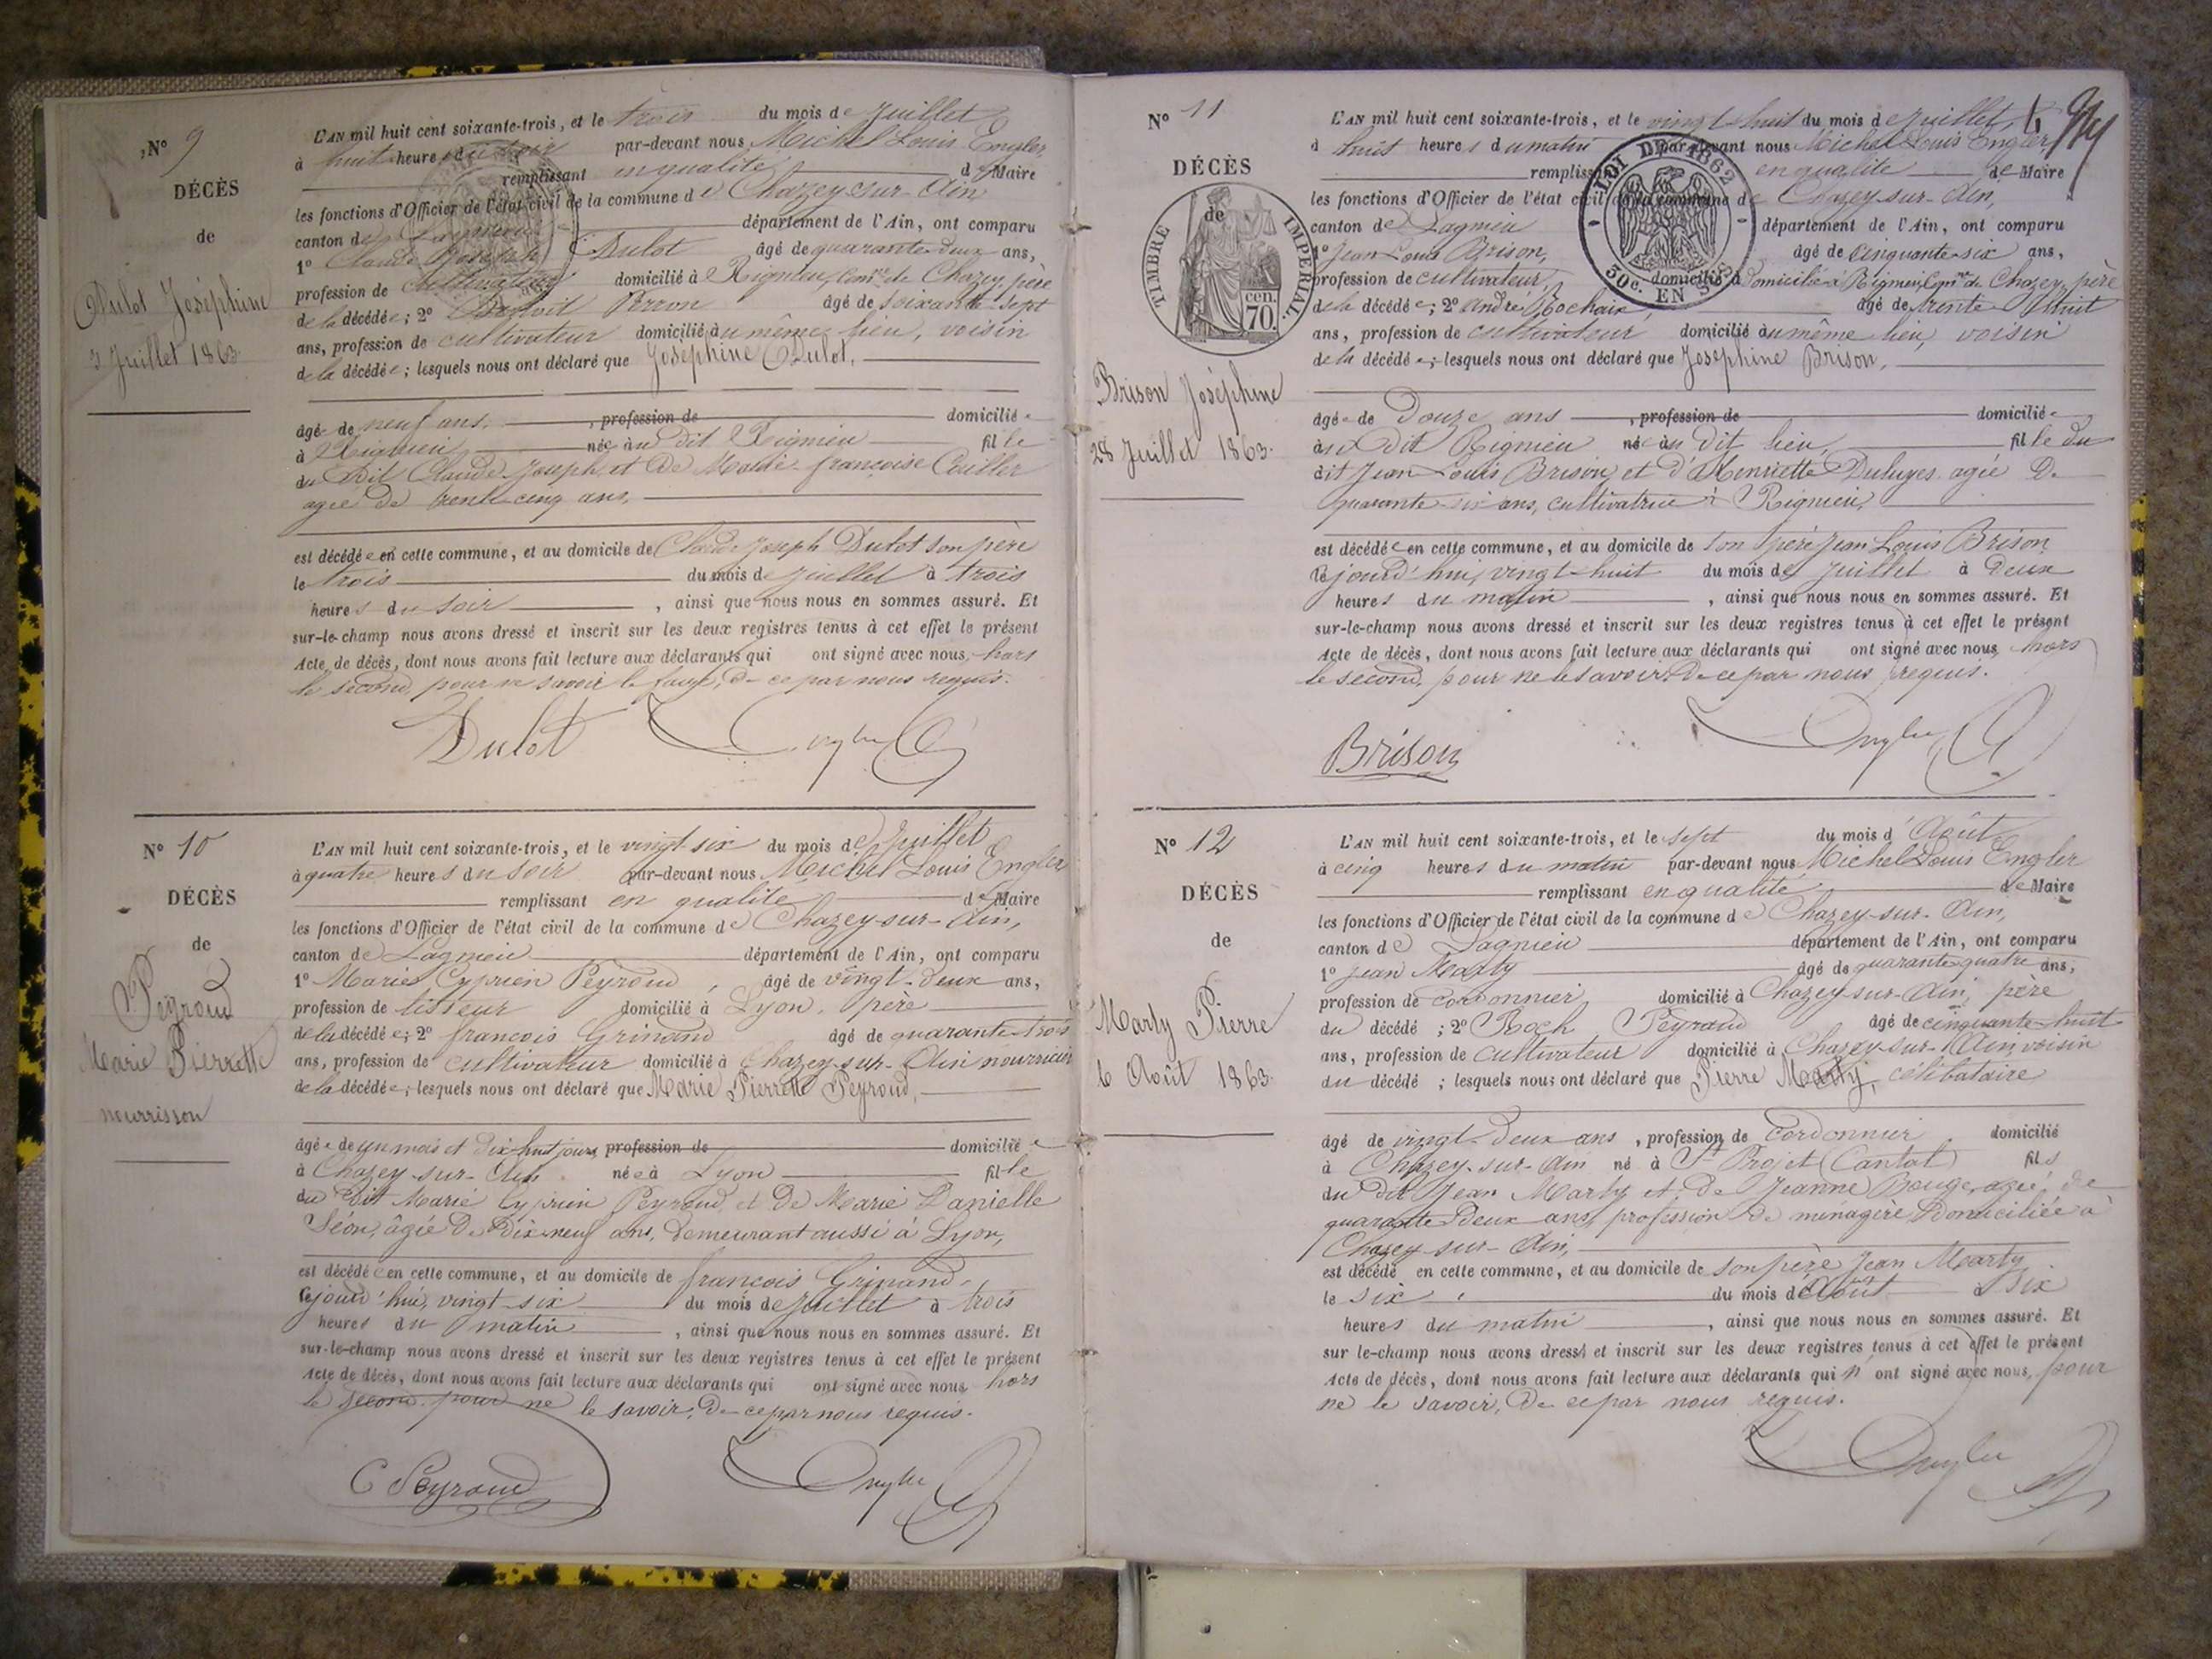 N° 9
DÉCÈS
de
Dulot Joséphine
3 Juillet 1863.
L'AN mil huit cent soixante-trois, et le trois du mois de Juillet
à huit heures du soir par-devant nous Michel Louis Engler,
remplissant en qualité de Maire
les fonctions d'Officier de l'état civil de la commune de Chazey-sur-Ain,
canton de Lagnieu département de l'Ain, ont comparu
1° Claude Joseph Dulot âgé de quarante-deux ans,
profession de cultivateur domicilié à Rignieu, Comne de Chazey, père
de la décédée; 2° Benoit Perron âgé de soixante-sept
ans, profession de cultivateur domicilié au même lieu, voisin
de la décédée; lesquels nous ont déclaré que Joséphine Dulot,
âgée de neuf ans, profession de domiciliée
à Rignieu née au dit Rignieu fille
du dit Claude Joseph et de Marie françoise
agée de trente-cinq ans,
est décédée en cette commune, et au domicile de Claude Joseph Dulot son père
le trois du mois de Juillet à trois
heures du soir, ainsi que nous nous en sommes assuré. Et
sur-le-champ nous avons dressé et inscrit sur les deux registres tenus à cet effet le présent
Acte de décès, dont nous avons fait lecture aux déclarants qui ont signé avec nous, hors
le second, pour ne savoir le faire, de ce par nous requis.
Dulot Engler
N° 10
DÉCÈS
de
Peyroud
Marie Pierrette
nourrisson
L'AN mil huit cent soixante-trois, et le vingt six du mois de Juillet
à quatre heures du soir par-devant nous Michel Louis Engler
remplissant en qualité de Maire
les fonctions d'Officier de l'état civil de la commune de Chazey-sur-Ain,
canton de Lagnieu département de l'Ain, ont comparu
1° Marie Cyprien Peyroud, âgé de vingt-deux ans,
profession de tisseur domicilié à Lyon, père
de la décédée; 2° françois Grinand âgé de quarante-trois
ans, profession de cultivateur domicilié à Chazey-sur-Ain nourricier
de la décédée; lesquels nous ont déclaré que Marie Pierrette Peyroud,
âgée de un mois et dix-huit jours, profession de domiciliée
à Chazey-sur-Ain née à Lyon fille
du dit Marie Cyprien Peyroud, et de Marie Danielle
Séon, âgée de dix-neuf ans, demeurant aussi à Lyon,
est décédée en cette commune, et au domicile de françois Grinand,
cejourd'hui, vingt-six du mois de Juillet à trois
heures du matin, ainsi que nous nous en sommes assuré. Et
sur-le-champ nous avons dressé et inscrit sur les deux registres tenus à cet effet le présent
Acte de décès, dont nous avons fait lecture aux déclarants qui ont signé avec nous, hors
le second, pour ne le savoir, de ce par nous requis.
C Peyroud Engler
N° 11
DÉCÈS
de
TIMBRE IMPERIAL.
cen.
70.
Brison Joséphine
28 Juillet 1863.
LOI DE 1862
50c. EN SUS
L'AN mil huit cent soixante-trois, et le vingt-huit du mois de Juillet,
à huit heures du matin par-devant nous Michel Louis Engler
remplissant en qualité de Maire
les fonctions d'Officier de l'état civil de la commune de Chazey-sur-Ain,
canton de Lagnieu département de l'Ain, ont comparu
1° Jean Louis Brison, âgé de cinquante-six ans,
profession de cultivateur, domicilié à Domicilié à Rignieu, Comne de Chazey, père
de la décédée; 2° André Rochaix, âgé de trente huit
ans, profession de cultivateur domicilié au même lieu, voisin
de la décédée; lesquels nous ont déclaré que Josephine Brison,
âgée de Douze ans, profession de domiciliée
au dit Rignieu née au dit lieu, fille du
dit Jean Louis Brison, et d'Henriette Duluyes agée de
quarante-six ans, cultivatrice à Rignieu,
est décédée en cette commune, et au domicile de son père Jean Louis Brison
cejourd'hui, vingt-huit du mois de Juillet à Deux
heures du matin, ainsi que nous nous en sommes assuré. Et
sur-le-champ nous avons dressé et inscrit sur les deux registres tenus à cet effet le présent
Acte de décès, dont nous avons fait lecture aux déclarants qui ont signé avec nous, hors
le second, pour ne le savoir, de ce par nous requis.
Brison Engler
N° 12
DÉCÈS
de
Marty Pierre
6 Août 1863.
L'AN mil huit cent soixante-trois, et le sept du mois d'Août
à cinq heures du matin par-devant nous Michel Louis Engler
remplissant en qualité de Maire
les fonctions d'Officier de l'état civil de la commune de Chazey-sur-Ain,
canton de Lagnieu département de l'Ain, ont comparu
1° Jean Marty âgé de quarante quatre ans,
profession de cordonnier domicilié à Chazey-sur-Ain, père
du décédé; 2° Roch Peyraud âgé de cinquante-huit
ans, profession de cultivateur domicilié à Chazey-sur-Ain, voisin
du décédé; lesquels nous ont déclaré que Pierre Marty, célibataire
âgé de vingt-deux ans, profession de cordonnier domicilié
à Chazey-sur-Ain né à St Projet (Cantal) fils
du dit Jean Marty et de Jeanne Bouge, agée de
quarante Deux ans, profession de menagère, Domiciliée à
Chazey-sur-Ain,
est décédé en cette commune, et au domicile de son père Jean Marty
le six du mois d'Août à Dix
heures du matin, ainsi que nous nous en sommes assuré. Et
sur le-champ nous avons dressé et inscrit sur les deux registres tenus à cet effet le présent
Acte de décès, dont nous avons fait lecture aux déclarants qui n'ont signé avec nous, pour
ne le savoir, de ce par nous requis.
Engler